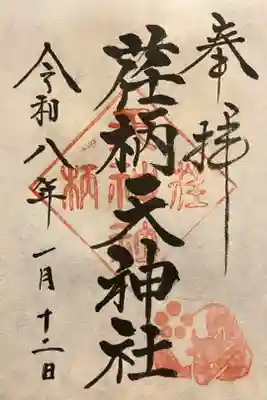 奉拝
荏柄天神社
令和八年
一月十二日